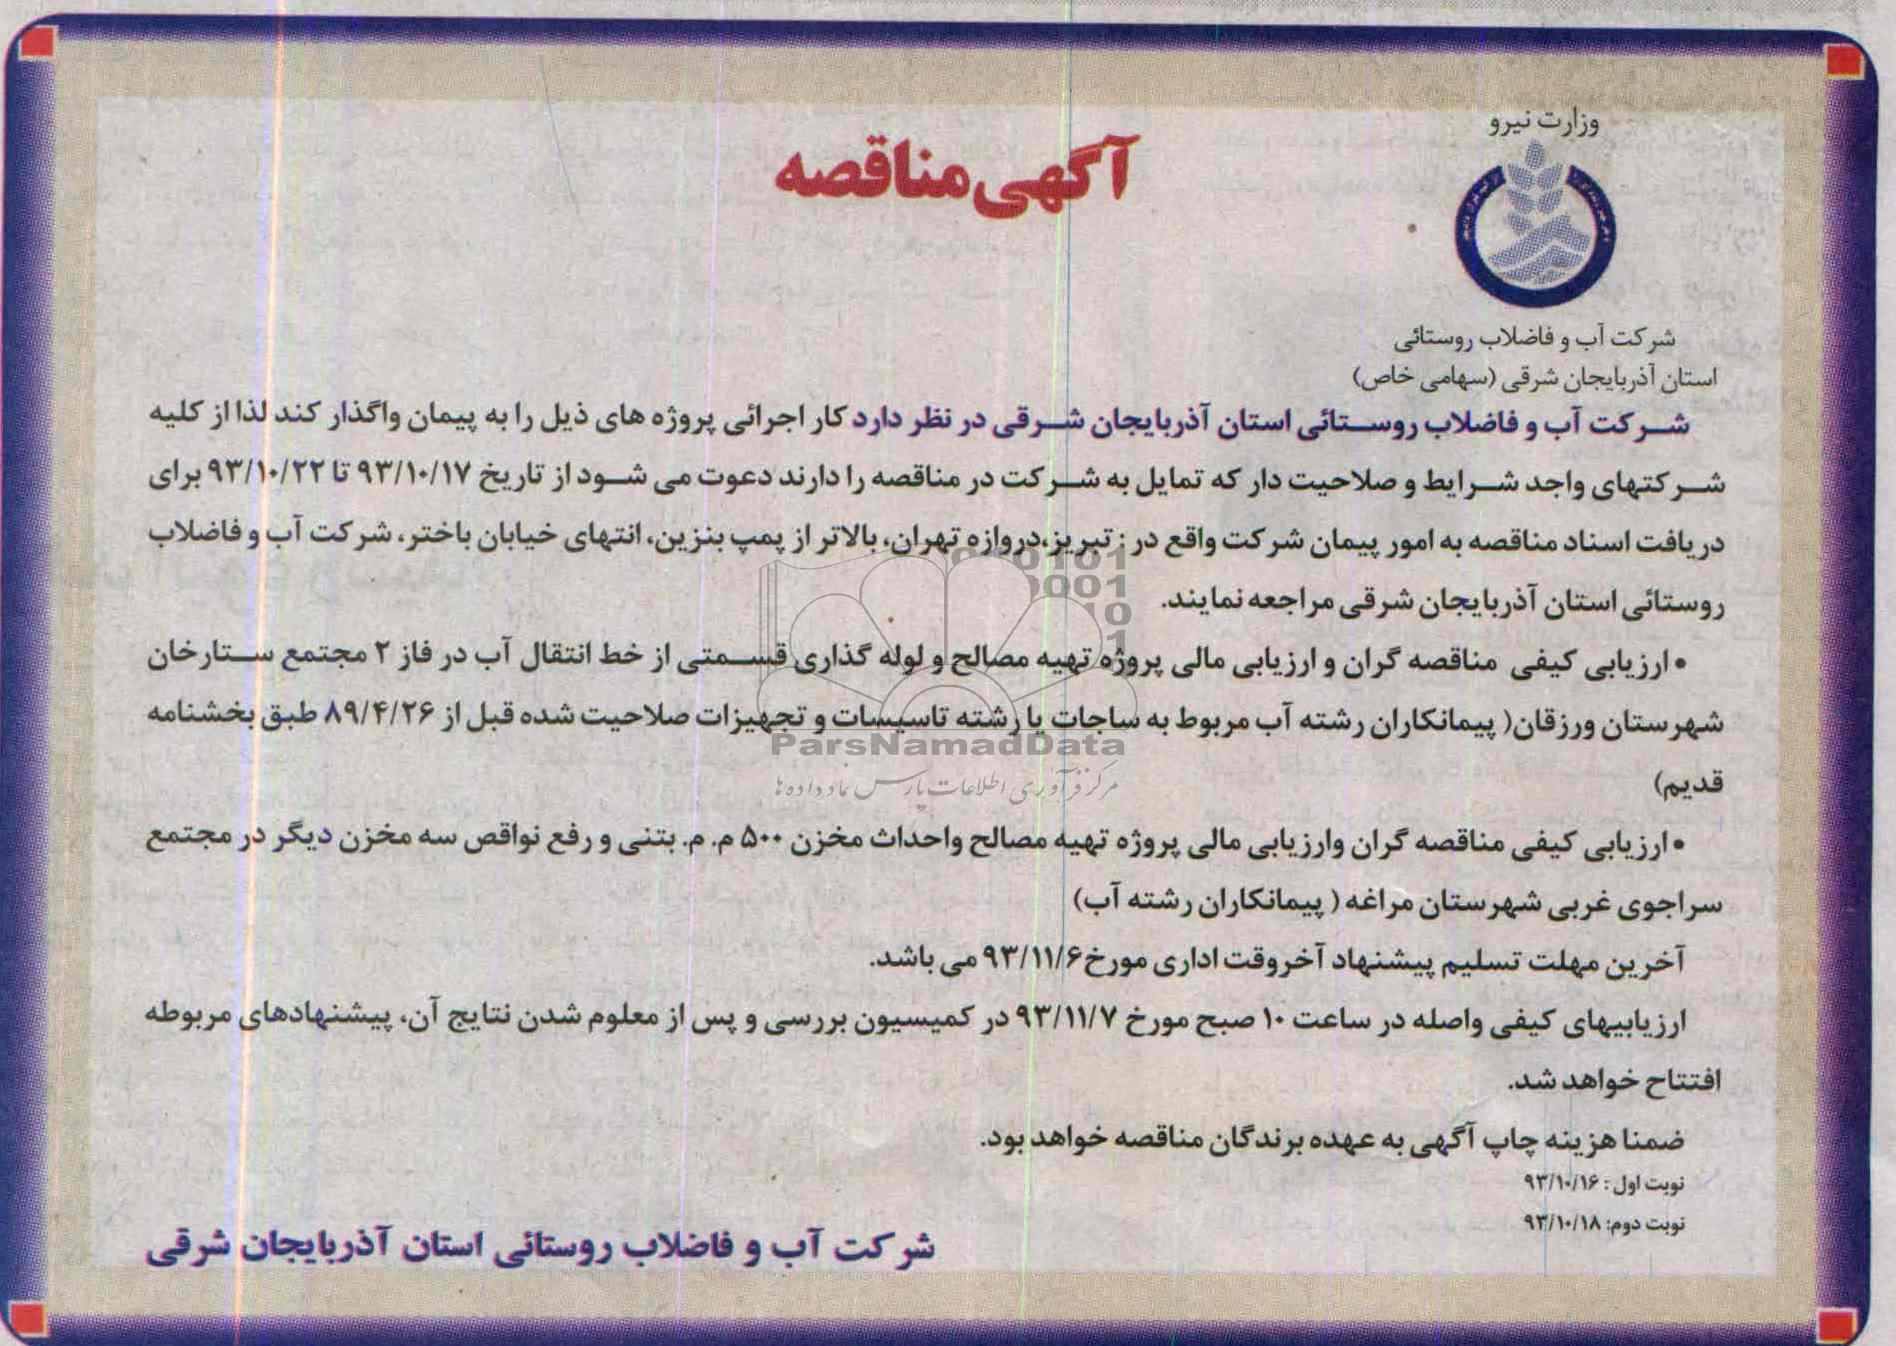 وزارت نیرو
آگهی مناقصه
شرکت آب و فاضلاب روستائی
استان آذربایجان شرقی (سهامی خاص)
شرکت آب و فاضلاب روستائی استان آذربایجان شرقی در نظر دارد کار اجرائی پروژه های ذیل را به پیمان واگذار کند لذا از کلیه
شرکتهای واجد شرایط و صلاحیت دار که تمایل به شرکت در مناقصه را دارند دعوت می شود از تاریخ ۹۳/۱۰/۱۷ تا ۹۳/۱۰/۲۲ برای
دریافت اسناد مناقصه به امور پیمان شرکت واقع در : تبریز،دروازه تهران، بالاتر از پمپ بنزین، انتهای خیابان باختر، شرکت آب و فاضلاب
روستائی استان آذربایجان شرقی مراجعه نمایند.
• ارزیابی کیفی مناقصه گران و ارزیابی مالی پروژه تهیه مصالح و لوله گذاری قسمتی از خط انتقال آب در فاز ۲ مجتمع ستارخان
شهرستان ورزقان( پیمانکاران رشته آب مربوط به ساجات یا رشته تاسیسات و تجهیزات صلاحیت شده قبل از ۸۹/۴/۲۶ طبق بخشنامه
قدیم)
• ارزیابی کیفی مناقصه گران وارزیابی مالی پروژه تهیه مصالح واحداث مخزن ۵۰۰ م. م. بتنی و رفع نواقص سه مخزن دیگر در مجتمع
سراجوی غربی شهرستان مراغه ( پیمانکاران رشته آب)
آخرین مهلت تسلیم پیشنهاد آخروقت اداری مورخ۹۳/۱۱/۶ می باشد.
ارزیابیهای کیفی واصله در ساعت ۱۰ صبح مورخ ۹۳/۱۱/۷ در کمیسیون بررسی و پس از معلوم شدن نتایج آن، پیشنهادهای مربوطه
افتتاح خواهد شد.
ضمنا هزینه چاپ آگهی به عهده برندگان مناقصه خواهد بود.
نوبت اول : ۹۳/۱۰/۱۶
نوبت دوم: ۹۳/۱۰/۱۸
شرکت آب و فاضلاب روستائی استان آذربایجان شرقی
ParsNamadData
مرکز فرآوری اطلاعات پارس نماد داده ها